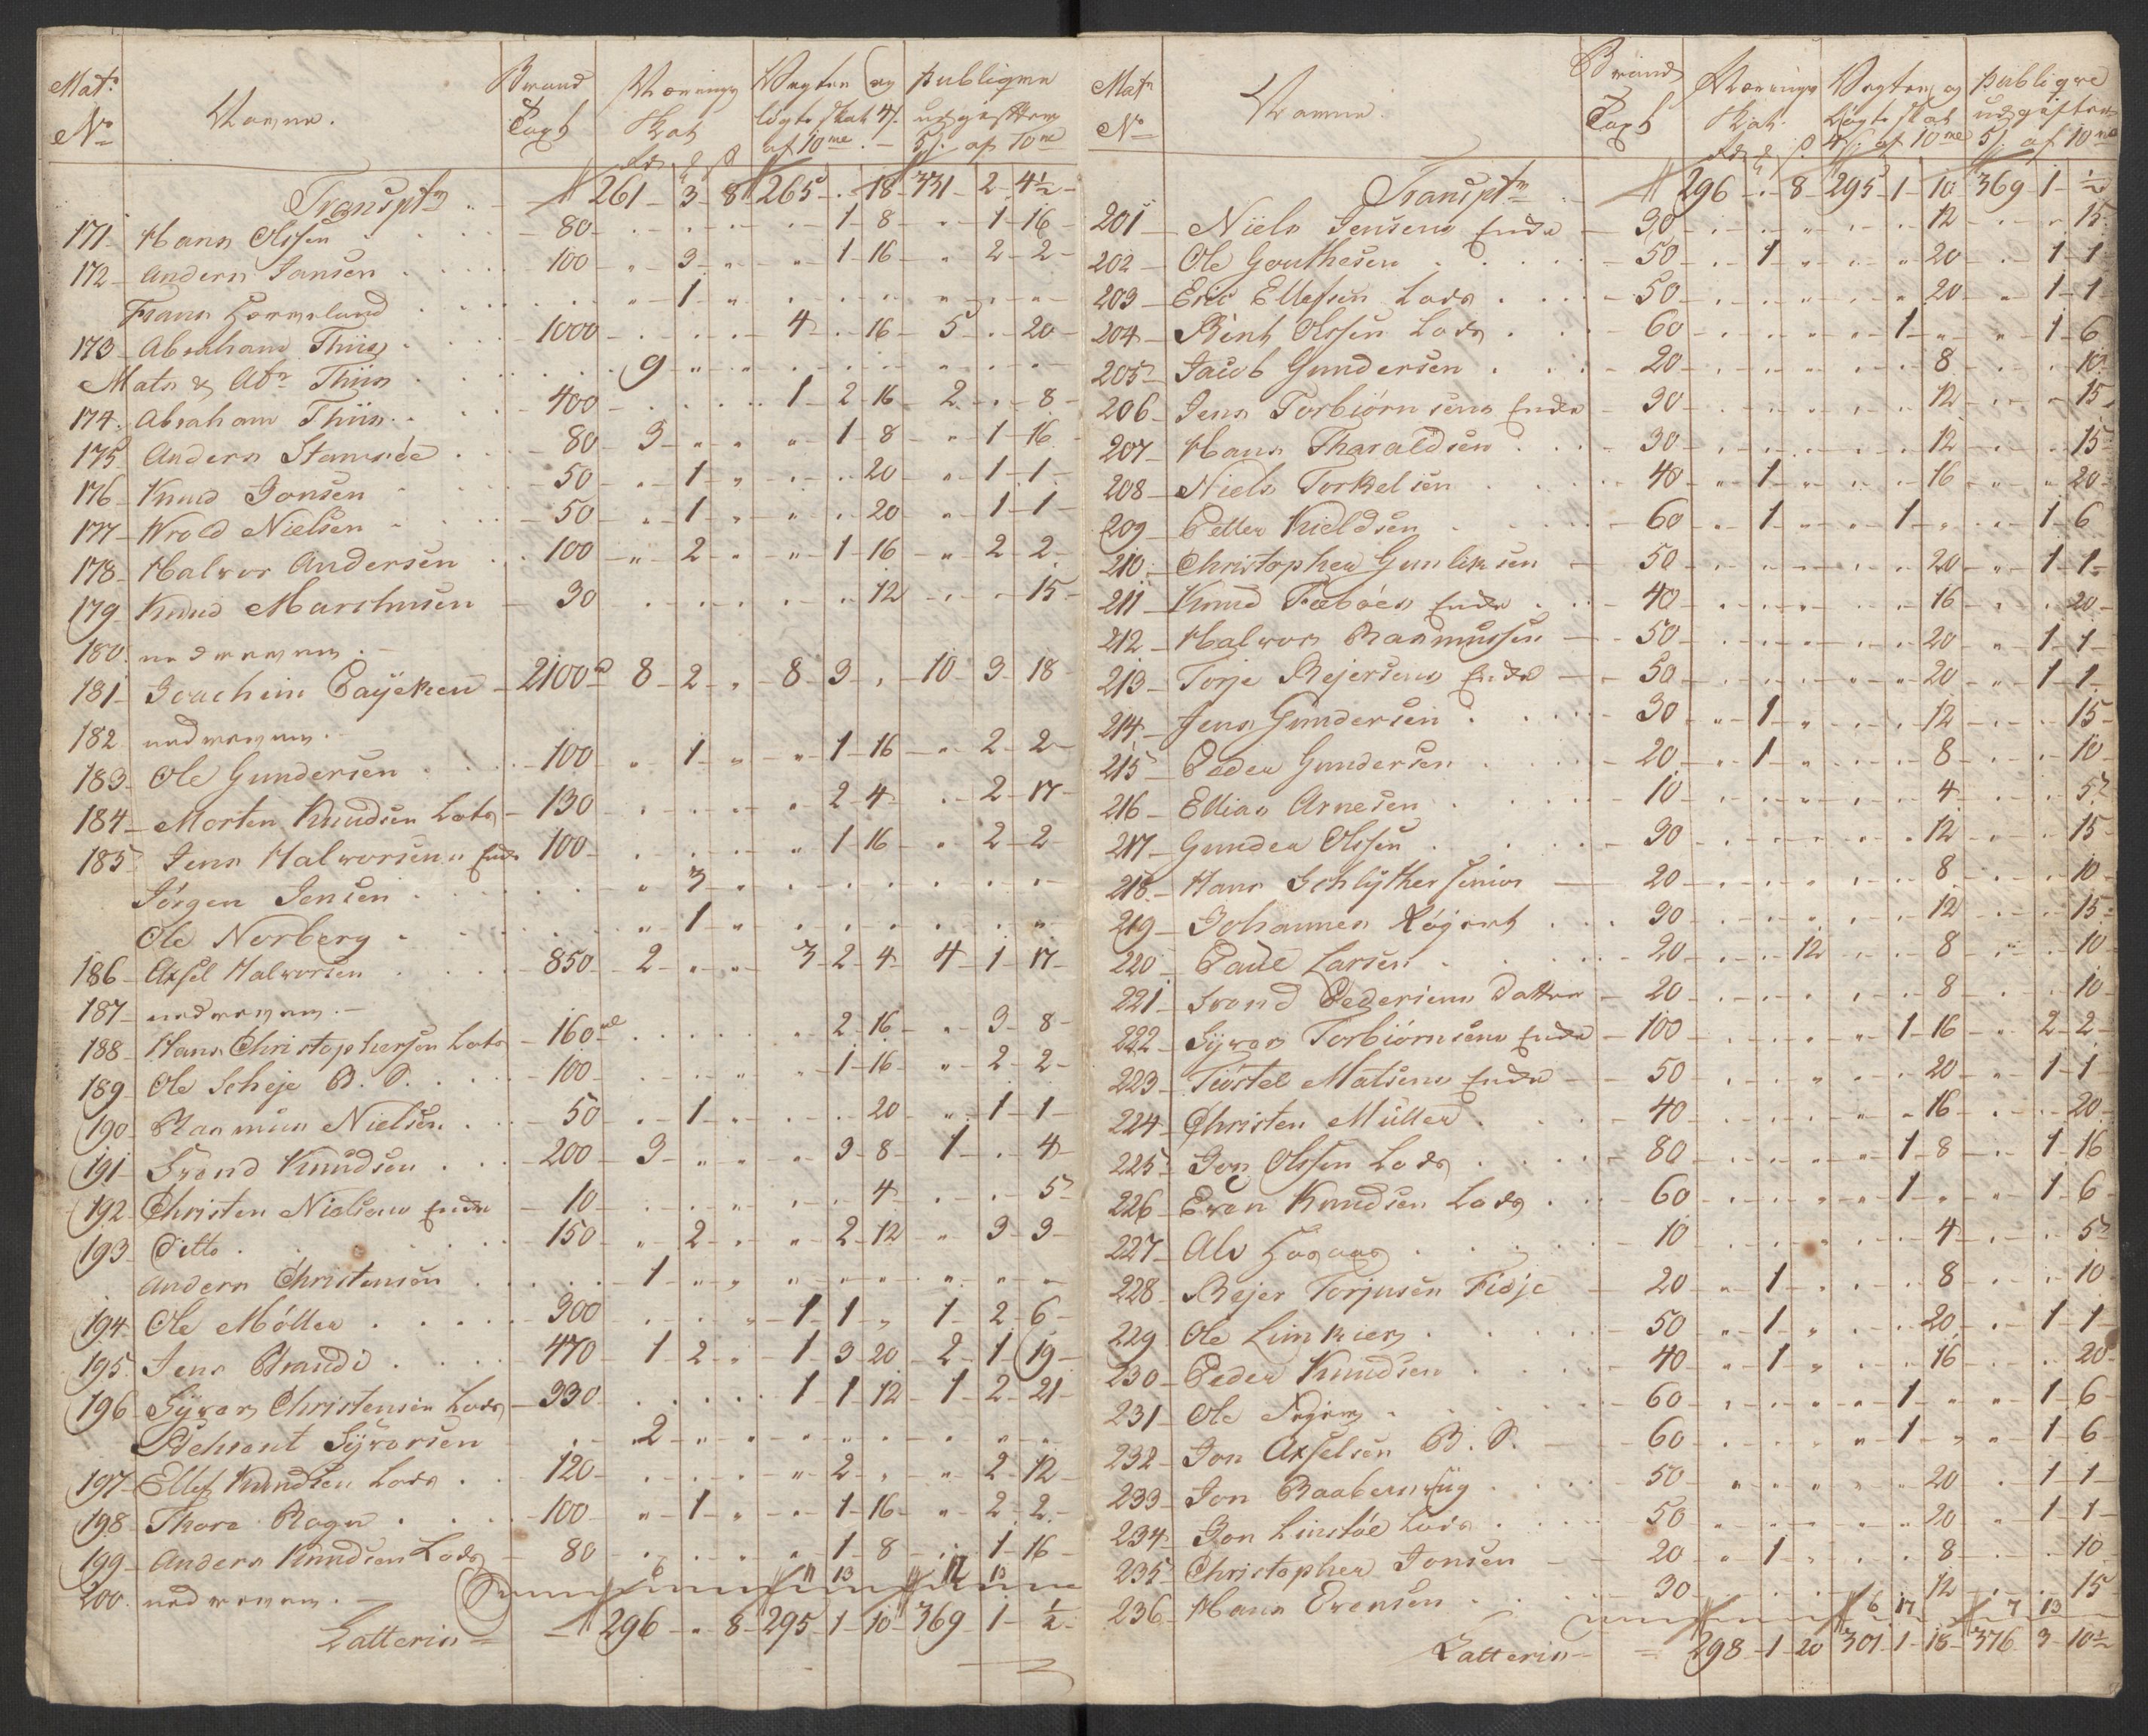 Mats No Navne. Brand Taxt Nærings Skat Vagten og ligte skat 4/. af 10 me Publique udgifter 5/. af 10 me
Transptn 261 3 8 265 . 18 331 2 4½
171 Hans Olsen 80 1 8 1 16
172 Anders Jansen 100 3 1 16 2 2
Frans 1
173 Abraham Thiis 1000 4 . 16 5 . 20
Mats & Abr Thiis 9
174 Abraham Thiis 400 1 2 16 2 . 8
175 Anders Stamsöe 80 3 1 8 1 16
176 Knud Jonsen 50 1 20 1 1
177 Wrold Nielsen 50 1 20 1 1
178 Halvor Andersen 100 2 1 16 2 2
179 Knud Marchusen 30 12 15
180 nedreven.
181 Joachim Paÿcken 2100 8 2 8 3 10 3 18
182 nedreven.
183 Ole Gundersen 100 1 1 16 2 2
184 Morten Knudsen Lots 130 2 4 2 17
185 Jens Halvorsens Enke 100 1 16 2 2
Jörgen Jensen 3
Ole Norberg 1
186 Axsel Halvorsen 850 2 3 2 4 4 1 17
187 nedreven.
188 Hans Christophersen Lots 160 2 16 3 8
189 Ole Scheje B. S. 100 1 16 2 2
190 Rasmus Nielsen 50 1 20 1 1
191 Trond Knudsen 200 3 3 8 1 . 4
192 Christen Nielsens Enke 10 4 5
193 Ditto 150 2 2 12 3 3
Anders Christensen 1
194 Ole Möller 300 1 1 1 2 6
195 Jens Strandi 470 1 2 1 3 20 2 1 19
196 Syvor Christensen Lods 330 1 1 12 1 2 21
Syvorsen 2
197 Ellef Knudsen Lods 120 2 2 12
198 Thore Rogn 100 1 1 16 2 2
199 Anders Knudsen Lods 80 1 8 1 16
200 nedreven. 6 11 13 12 13
Latteris 296 . 8 295 1 10 369 1 ½
Mats No Navne. Brand Taxt Nærings Skat Vagten og Ligte skat 4/. af 10 me Publique udgifter 5/. af 10 me
Transptn 296 . 8 295 1 10 369 1 ½
201 Niels Jensens Enke 30 12 15
202 Ole Gouthesen 50 1 20 1 1
203 Eric Ellefsen Lods 50 20 1 1
204 Bent Olsen Lods 60 1 1 6
205 Jacob Gundersen 20 8 10
206 Jens Torbiörnsens Enke 30 12 15
207 Hans Tharaldsen 30 12 15
208 Niels Torkelsen 40 1 16 20
209 Petter Kieldsen 60 1 1 1 6
210 Christopher Gunliksen 50 20 1 1
211 Knud Enke 40 16 20
212 Halvor Rasmussen 50 20 1 1
213 Torje Rejersens Enke 50 20 1 1
214 Jens Gundersen 30 1 12 15
215 Peder Gundersen 20 1 8 10
216 Ellias Arnesen 10 4 5
217 Gunder Olsen 30 12 15
218 Hans Schlÿther senior 20 8 10
219 Johannes Røgert 30 12 15
220 Paul Larsen 20 12 8 10
221 Trond Pedersens Datter 20 8 10
222 Syvor Torbiörnsens Enke 100 1 16 2 2
223 Tiöstel Matsens Enke 50 20 1 1
224 Christen Müller 40 16 20
225 Jon Olsen Lods 80 1 8 1 16
226 Even Knudsen Lods 60 1 1 6
227 Als 10 4 5
228 Rejer Torjusen Fidje 20 1 8 10
229 Ole Limkier 50 1 20 1 1
230 Peder Knudsen 40 1 16 20
231 Ole 60 1 1 6
232 Jon Axselsen B. S. 60 1 1 6
233 Jon 50 20 1 1
234 Jon Linstöl Lods 50 20 1 1
235 Christopher Jonsen 20 1 8 10
236 Hans Evensen 30 12 15
6 17 7 13
Latteris 298 1 20 301 1 18 376 3 10½